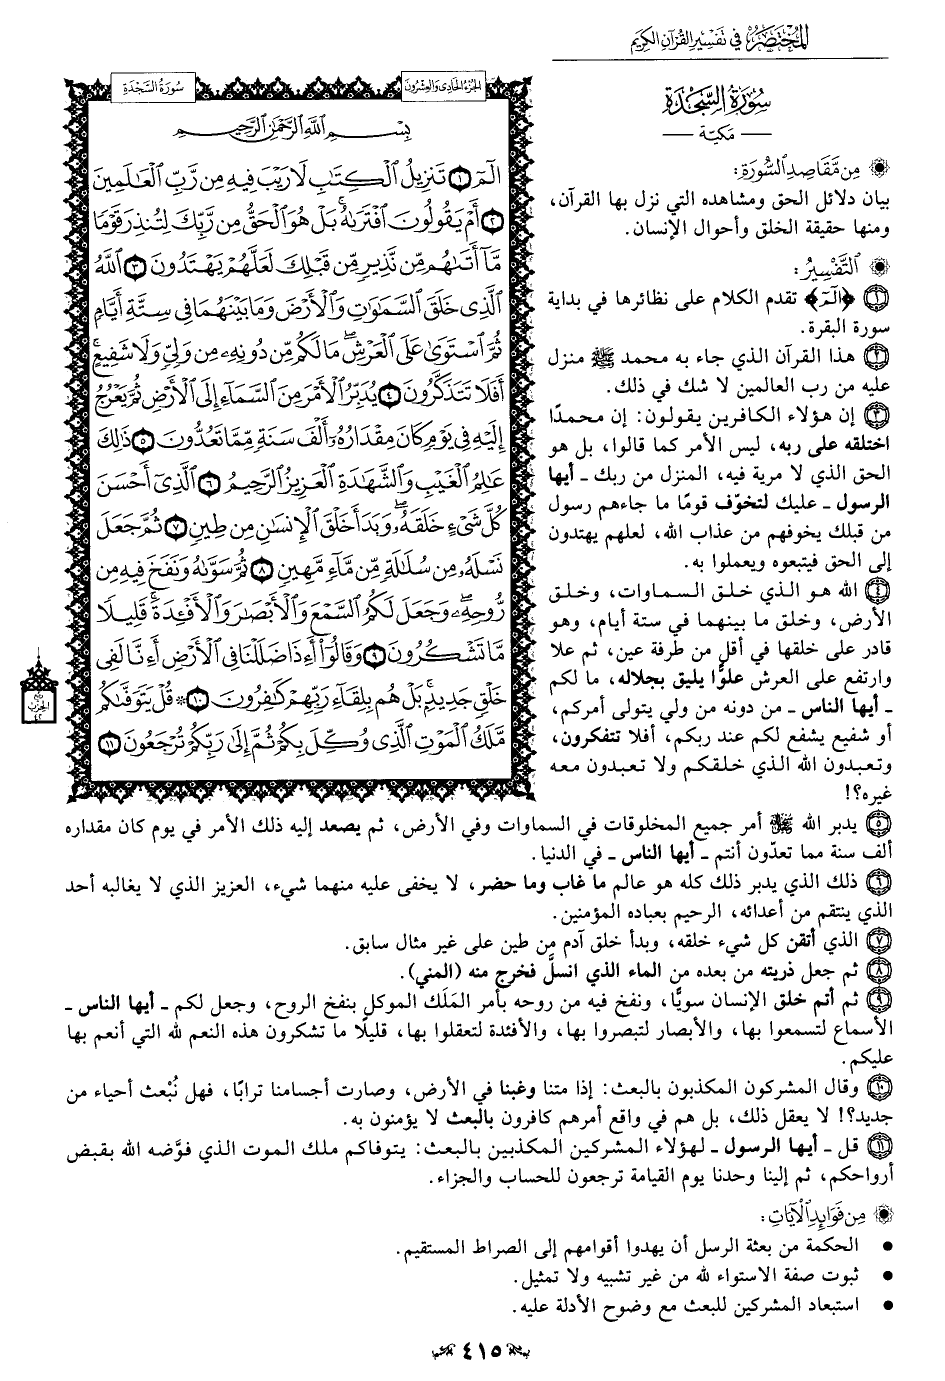 المختصر في تفسير القرآن الكريم
سورة السجدة
مكية
من مقاصد السورة:
بيان دلائل الحق ومشاهده التي نزل بها القرآن،
ومنها حقيقة الخلق وأحوال الإنسان.
التفسير:
١ ﴿الٓمٓ﴾ تقدم الكلام على نظائرها في بداية
سورة البقرة.
٢ هذا القرآن الذي جاء به محمد ﷺ منزل
عليه من رب العالمين لا شك في ذلك.
٣ إن هؤلاء الكافرين يقولون: إن محمدًا
اختلقه على ربه، ليس الأمر كما قالوا، بل هو
الحق الذي لا مرية فيه، المنزل من ربك ـ أيها
الرسول ـ عليك لتخوّف قومًا ما جاءهم رسول
من قبلك يخوفهم من عذاب الله، لعلهم يهتدون
إلى الحق فيتبعوه ويعملوا به.
٤ الله هو الذي خلق السماوات، وخلق
الأرض، وخلق ما بينهما في ستة أيام، وهو
قادر على خلقها في أقل من طرفة عين، ثم علا
وارتفع على العرش علوًّا يليق بجلاله، ما لكم
ـ أيها الناس ـ من دونه من ولي يتولى أمركم،
أو شفيع يشفع لكم عند ربكم، أفلا تتفكرون،
وتعبدون الله الذي خلقكم ولا تعبدون معه
غيره؟!
الجزء الحادي والعشرون
سورة السجدة
بسم الله الرحمن الرحيم
الٓمٓ ١ تَنزِيلُ ٱلْكِتَٰبِ لَا رَيْبَ فِيهِ مِن رَّبِّ ٱلْعَٰلَمِينَ
٢ أَمْ يَقُولُونَ ٱفْتَرَىٰهُ ۚ بَلْ هُوَ ٱلْحَقُّ مِن رَّبِّكَ لِتُنذِرَ قَوْمًا
مَّآ أَتَىٰهُم مِّن نَّذِيرٍ مِّن قَبْلِكَ لَعَلَّهُمْ يَهْتَدُونَ ٣ ٱللَّهُ
ٱلَّذِى خَلَقَ ٱلسَّمَٰوَٰتِ وَٱلْأَرْضَ وَمَا بَيْنَهُمَا فِى سِتَّةِ أَيَّامٍ
ثُمَّ ٱسْتَوَىٰ عَلَى ٱلْعَرْشِ ۖ مَا لَكُم مِّن دُونِهِۦ مِن وَلِىٍّ وَلَا شَفِيعٍ ۚ
أَفَلَا تَتَذَكَّرُونَ ٤ يُدَبِّرُ ٱلْأَمْرَ مِنَ ٱلسَّمَآءِ إِلَى ٱلْأَرْضِ ثُمَّ يَعْرُجُ
إِلَيْهِ فِى يَوْمٍ كَانَ مِقْدَارُهُۥٓ أَلْفَ سَنَةٍ مِّمَّا تَعُدُّونَ ٥ ذَٰلِكَ
عَٰلِمُ ٱلْغَيْبِ وَٱلشَّهَٰدَةِ ٱلْعَزِيزُ ٱلرَّحِيمُ ٦ ٱلَّذِىٓ أَحْسَنَ
كُلَّ شَىْءٍ خَلَقَهُۥ ۖ وَبَدَأَ خَلْقَ ٱلْإِنسَٰنِ مِن طِينٍ ٧ ثُمَّ جَعَلَ
نَسْلَهُۥ مِن سُلَٰلَةٍ مِّن مَّآءٍ مَّهِينٍ ٨ ثُمَّ سَوَّىٰهُ وَنَفَخَ فِيهِ مِن
رُّوحِهِۦ ۖ وَجَعَلَ لَكُمُ ٱلسَّمْعَ وَٱلْأَبْصَٰرَ وَٱلْأَفْـِٔدَةَ ۚ قَلِيلًا
مَّا تَشْكُرُونَ ٩ وَقَالُوٓا۟ أَءِذَا ضَلَلْنَا فِى ٱلْأَرْضِ أَءِنَّا لَفِى
خَلْقٍ جَدِيدٍۭ ۚ بَلْ هُم بِلِقَآءِ رَبِّهِمْ كَٰفِرُونَ ١٠ ۞ قُلْ يَتَوَفَّىٰكُم
مَّلَكُ ٱلْمَوْتِ ٱلَّذِى وُكِّلَ بِكُمْ ثُمَّ إِلَىٰ رَبِّكُمْ تُرْجَعُونَ ١١
ربع
الحزب
٤٢
٥ يدبر الله ﷻ أمر جميع المخلوقات في السماوات وفي الأرض، ثم يصعد إليه ذلك الأمر في يوم كان مقداره
ألف سنة مما تعدّون أنتم ـ أيها الناس ـ في الدنيا.
٦ ذلك الذي يدبر ذلك كله هو عالم ما غاب وما حضر، لا يخفى عليه منهما شيء، العزيز الذي لا يغالبه أحد
الذي ينتقم من أعدائه، الرحيم بعباده المؤمنين.
٧ الذي أتقن كل شيء خلقه، وبدأ خلق آدم من طين على غير مثال سابق.
٨ ثم جعل ذريته من بعده من الماء الذي انسلَّ فخرج منه (المني).
٩ ثم أتم خلق الإنسان سويًّا، ونفخ فيه من روحه بأمر المَلَك الموكل بنفخ الروح، وجعل لكم ـ أيها الناس ـ
الأسماع لتسمعوا بها، والأبصار لتبصروا بها، والأفئدة لتعقلوا بها، قليلًا ما تشكرون هذه النعم لله التي أنعم بها
عليكم.
١٠ وقال المشركون المكذبون بالبعث: إذا متنا وغبنا في الأرض، وصارت أجسامنا ترابًا، فهل نُبْعث أحياء من
جديد؟! لا يعقل ذلك، بل هم في واقع أمرهم كافرون بالبعث لا يؤمنون به.
١١ قل ـ أيها الرسول ـ لهؤلاء المشركين المكذبين بالبعث: يتوفاكم ملك الموت الذي فوَّضه الله بقبض
أرواحكم، ثم إلينا وحدنا يوم القيامة ترجعون للحساب والجزاء.
من فوائد الآيات:
• الحكمة من بعثة الرسل أن يهدوا أقوامهم إلى الصراط المستقيم.
• ثبوت صفة الاستواء لله من غير تشبيه ولا تمثيل.
• استبعاد المشركين للبعث مع وضوح الأدلة عليه.
٤١٥